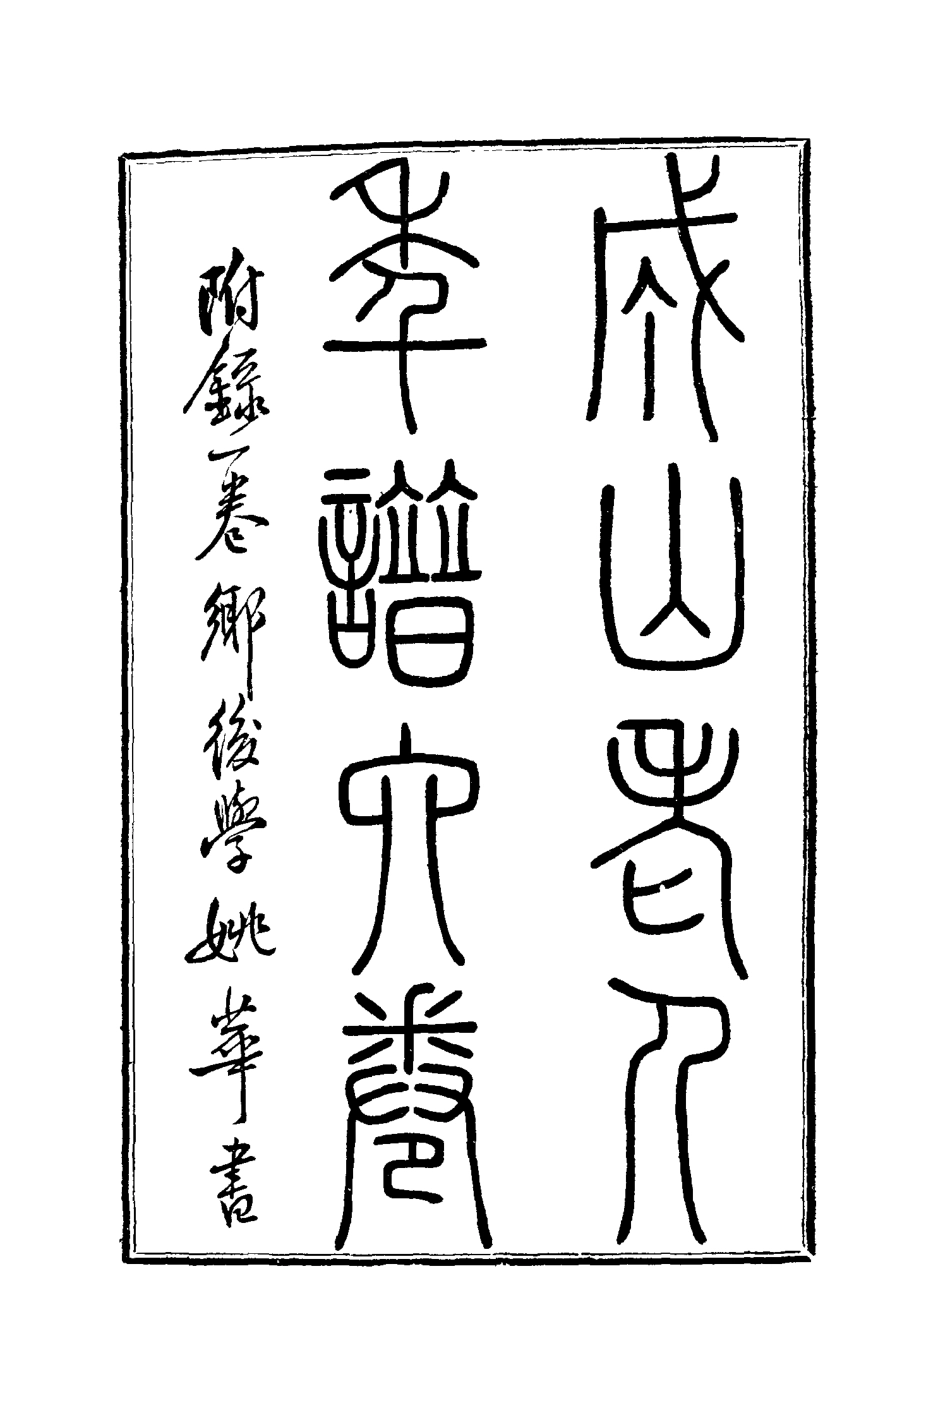 成山老人
年譜六卷
附錄一卷 鄉後學姚華書